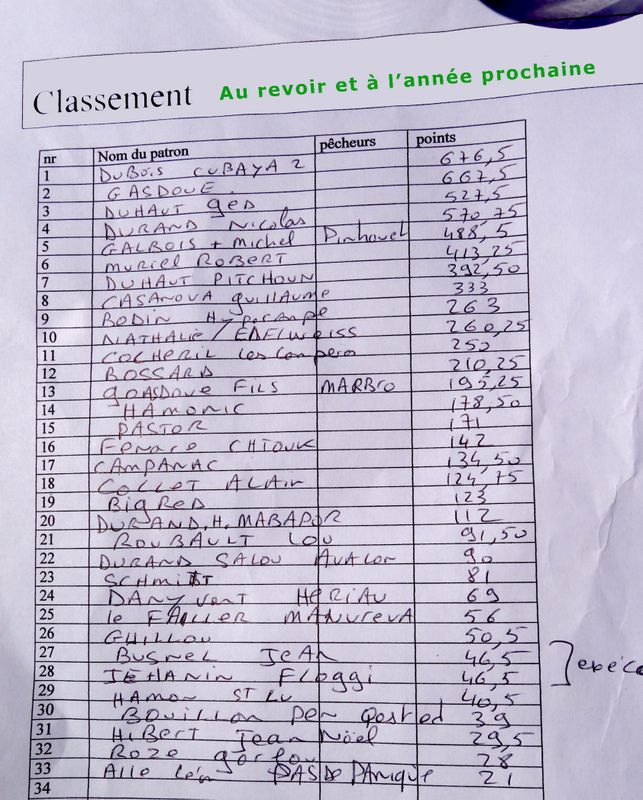 Classement Au revoir et à l'année prochaine
nr Nom du patron pêcheurs points
1 DUBOIS CUBAYA 2 676,5
2 GASDOUE. 667,5
3 DUHAUT GED 527,5
4 DURAND Nicolas 570,75
5 GALBOIS + Michel Pinhouet 488,5
6 MURIEL ROBERT 413,25
7 DUHAUT PITCHOUN 392,50
8 CASANOVA GUILLAUME 333
9 BODIN 263
10 NATHALIE / EDELWEISS 260,25
11 COCHERIL les comperes 250
12 BOSSARD 210,25
13 GOASDOUE FILS MARBRO 195,25
14 HAMONIC 178,50
15 PASTOR 171
16 CHIOUK 142
17 CAMPANAC 134,50
18 COLLET ALAIN 124,75
19 BIGRED 123
20 DURAND.H. MABAPOR 112
21 ROUBAULT LOU 91,50
22 DURAND SALOU AVALON 90
23 SCHMITT 81
24 DANY vent HERIAU 69
25 le FAILLER MANUREVA 56
26 GUILLOU 50,5
27 BUSNEL JEAN 46,5
28 JEHANIN FLOGGI 46,5
29 HAMON ST LU 40,5
30 BOUILLON 39
31 HIBERT Jean Noël 29,5
32 ROZE 28
33 PAS DE PANIQUE 21
34